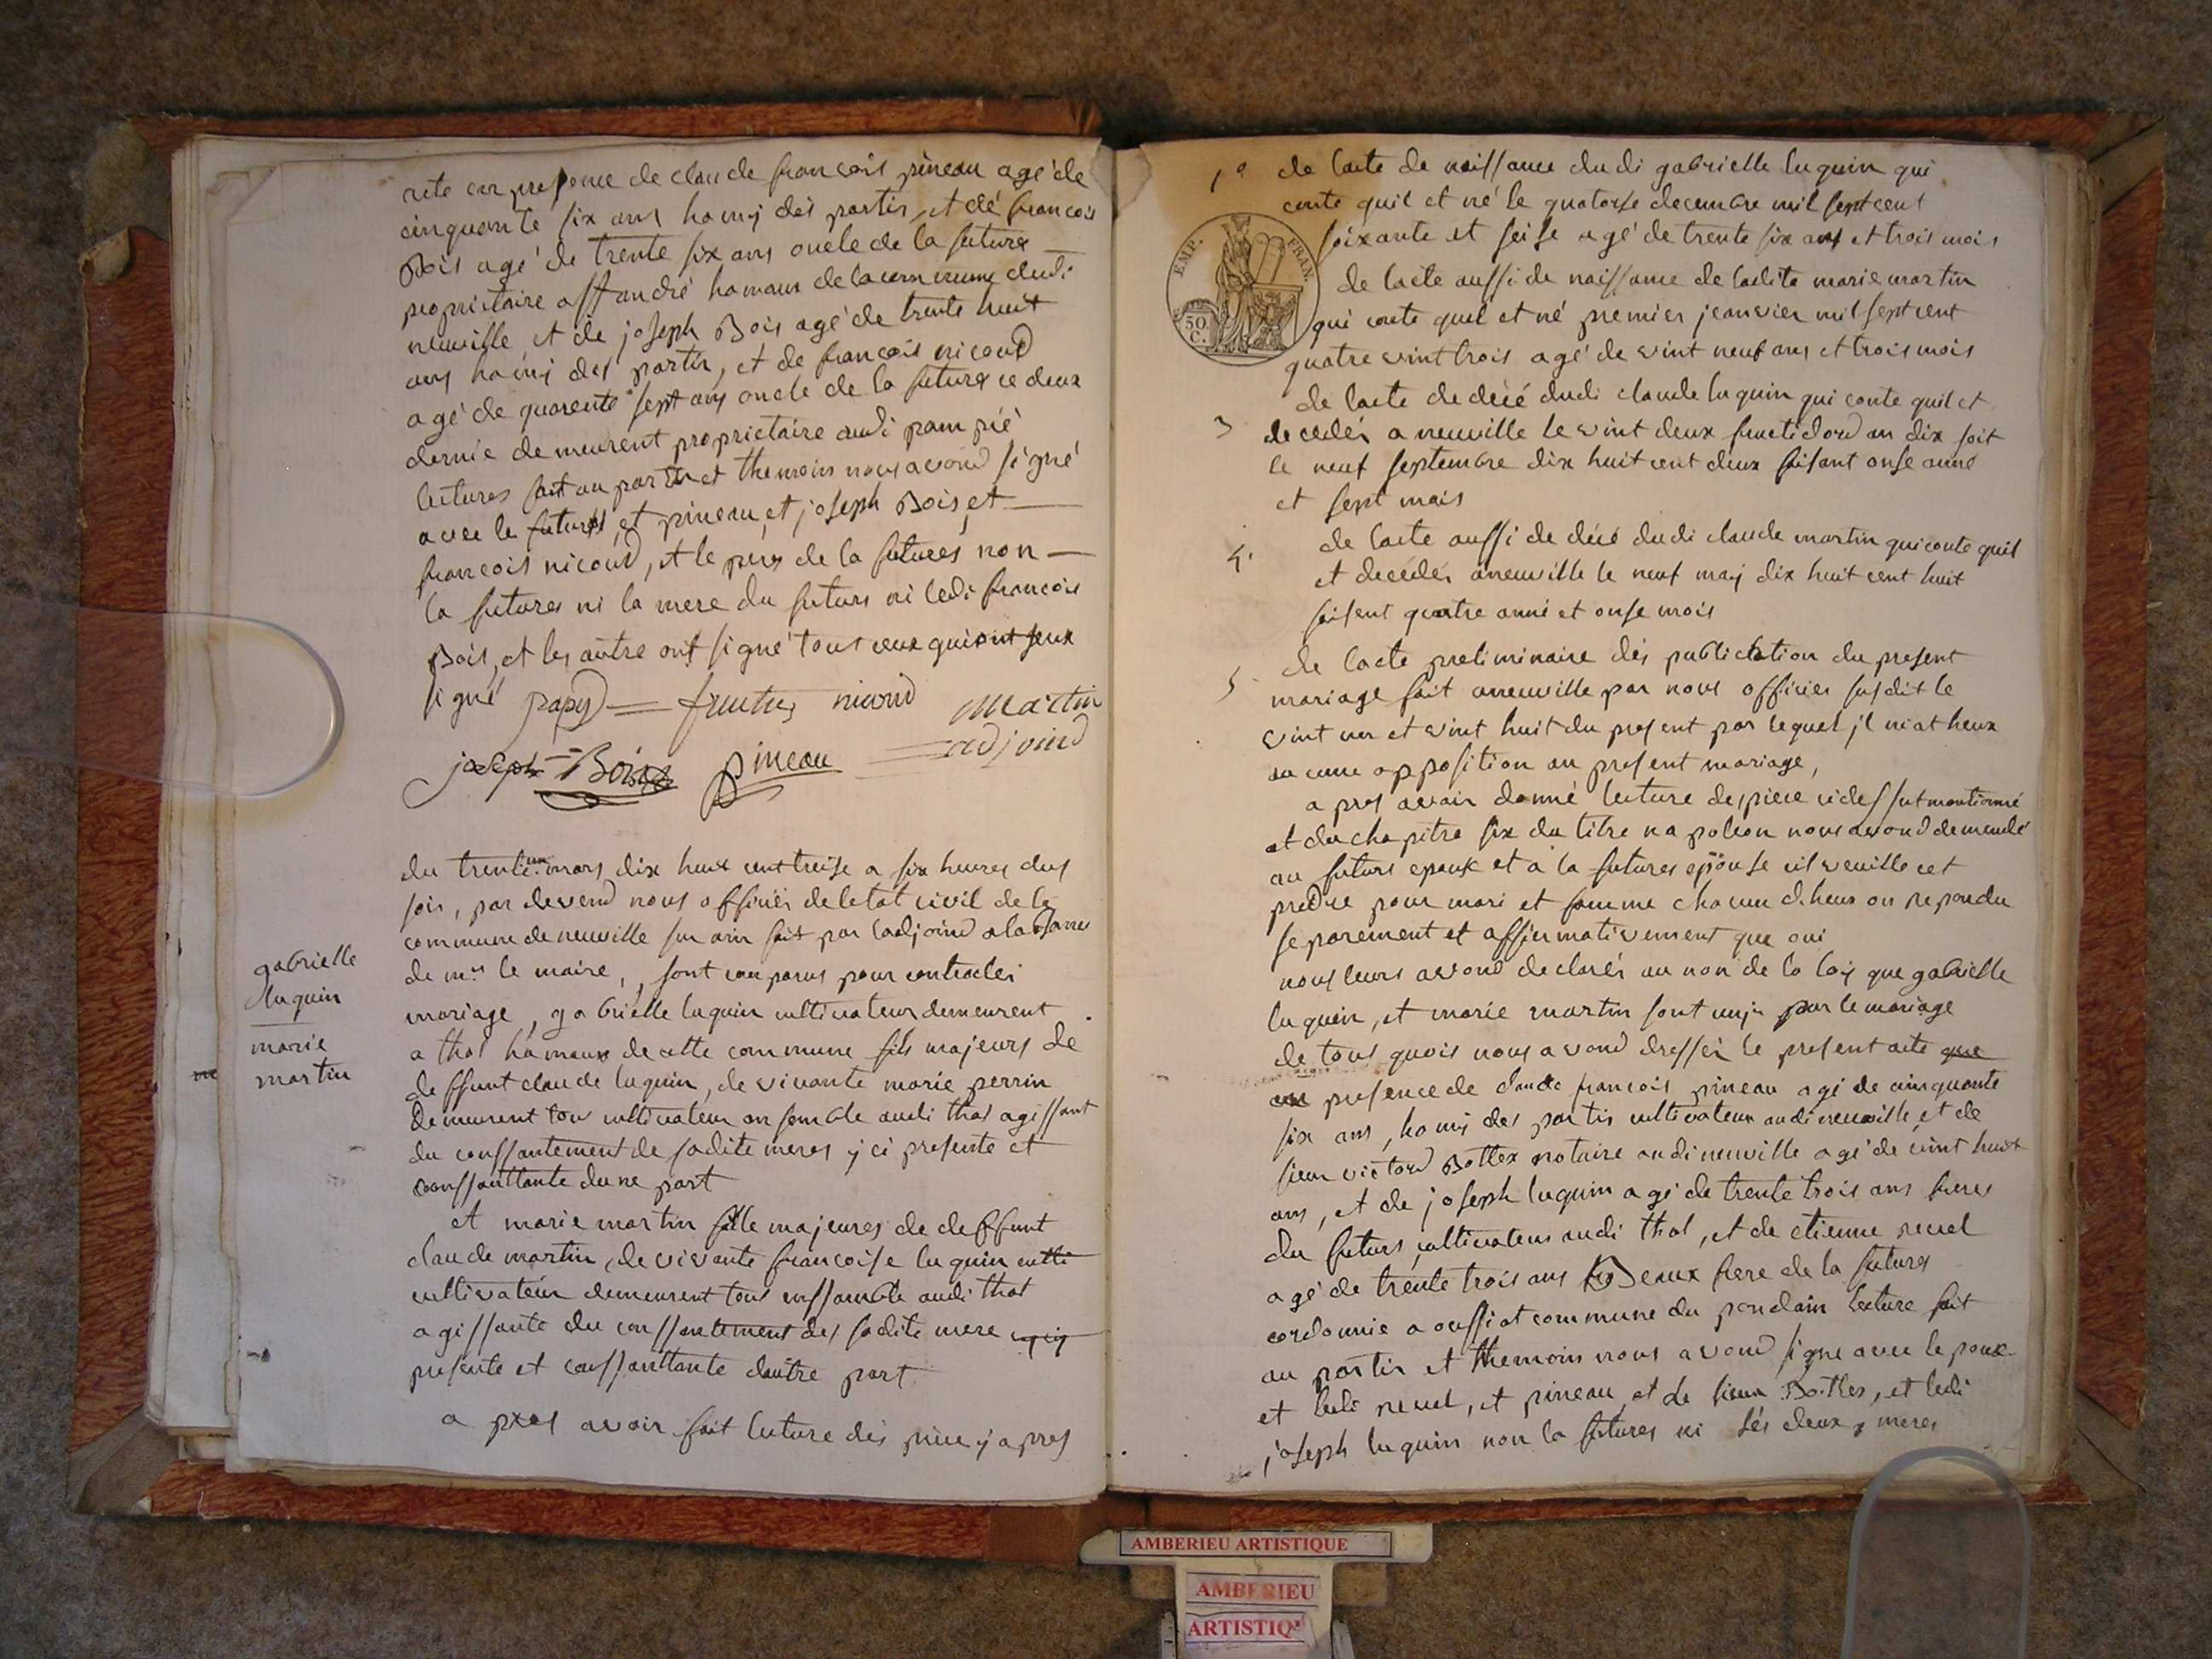 acte en presence de claude francois pineau agé de
cinquante six ans hamij des partis, et dé francois
Bois agé de trente six ans oncle de la future
propriétaire hamaux de la commune dudi
neuville, et de joseph Bois agé de trente huit
ans hamij des partis, et de francois nicoud
agé de quarente sept ans oncle de la future ce deux
dernié demeurent proprietaire audi pampié
lectures fait au partis et themoins nous avond signé
avec le futurs, et pineau, et joseph Bois, et
francois nicoud, et le pere de la futures non
la futures ni la mere du futurs ni ledi francois
Bois, et les autre ont signé tous ceux qui ont seux
signé papy nicoud Martin
joseph Bois pineau adjoind
du trente un mars dix huit cent treise a six heures dus
soir, par devend nous officier de letat civil de la
commune de neuville sur ain fait par ladjoind a labsance
de mr le maire, sont conparus pour contracter
mariage, gabrielle luquin cultivateur demeurent
a thol hamaux de cette commune fils majeurs de
deffunt claude luquin, de vivante marie perrin
demeurent tou cultivateur ansemble audi thol agissant
du conssantement de sadite meres y ci presente et
conssanttante dune part
gabrielle
luquin
marie
martin
et marie martin fille majeures de deffunt
claude martin, de vivante francoise luquin culti
cultivateur demeurent tous enssamble audi thol
agissante du conssentement des sadite mere
presente et conssanttante dautre part
a pres avoir fait lecture dés piece y apres
1o de lacte de naissance dudi gabrielle luquin qui
conte quil et né le quatorse decembre mil sept cent
soixante et seise agé de trente six ans et trois mois
EMP. FRAN.
50 C.
de lacte aussi de naissance de ladite marie martin
qui conte quel et né premier jeanvier mil sept cent
quatre vint trois agé de vint neuf ans et trois mois
3 de lacte de décé dudi claude luquin qui conte quil et
decedés a neuville le vint deux fructidord an dix soit
le neuf septembre dix huit cent deux faisant onse anné
et sept mois
4. de lacte aussi de décé dudi claude martin qui conte quil
et decédés aneuville le neuf maij dix huit cent huit
faisent quatre anné et onse mois
5 de lacte preliminaire dés publication du present
mariage fait aneuville par nous officier susdit le
vint un et vint huit du present par lequel jl ni at heux
aucune opposition au present mariage,
a pres avoir donné lecture des piece ci dessut mantionné
et du chapitre six du titre napoleon nous avond demendé
au futurs epoux et a la futures épouse cil veuille cet
predre pour mari et famme chacun dheux on repondu
separement et affirmativement que oui
nous leurs avond declarés au non de la loij que gabrielle
luquin, et marie martin sont unjs par le mariage
de tous quois nous avond dressér le present acte que
en presence de claude francois pineau agé de cinquante
six ans, hamij des partis cultivateur audi neuville, et de
sieur victord Bottex notaire audi neuville agé de vint huit
ans, et de joseph luquin agé de trente trois ans freres
du futurs, cultivateur audi thol, et de etienne revel
agé de trente trois ans Beaux frere de la futures
cordonnié a oussiat commune du pondain lecture fait
au partis et themoins nous avond signe avec le poux
et ledi revel, et pineau, et le sieur Bottex, et ledi
joseph luquin non la futures ni sés deux meres
AMBERIEU ARTISTIQUE
AMBERIEU
ARTISTIQ